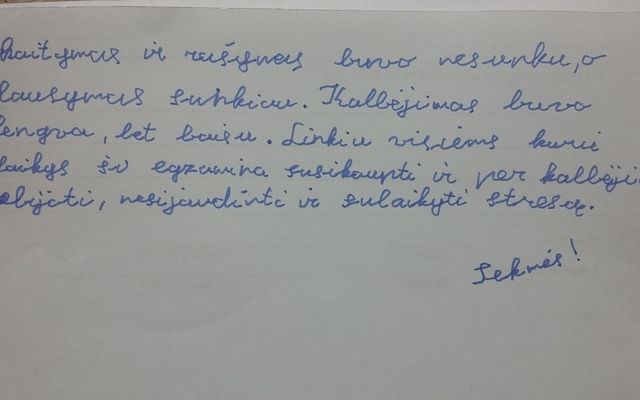 kaitymas ir rašymas buvo nesunku, o
lausymas sunkiau. Kalbėjimas buvo
lengva, bet baisu. Linkiu visiems kurie
laikys egzamina susikaupti ir per kalbėji
ebijoti, nesijaudinti ir sulaikyti stresą.
Sekmės!